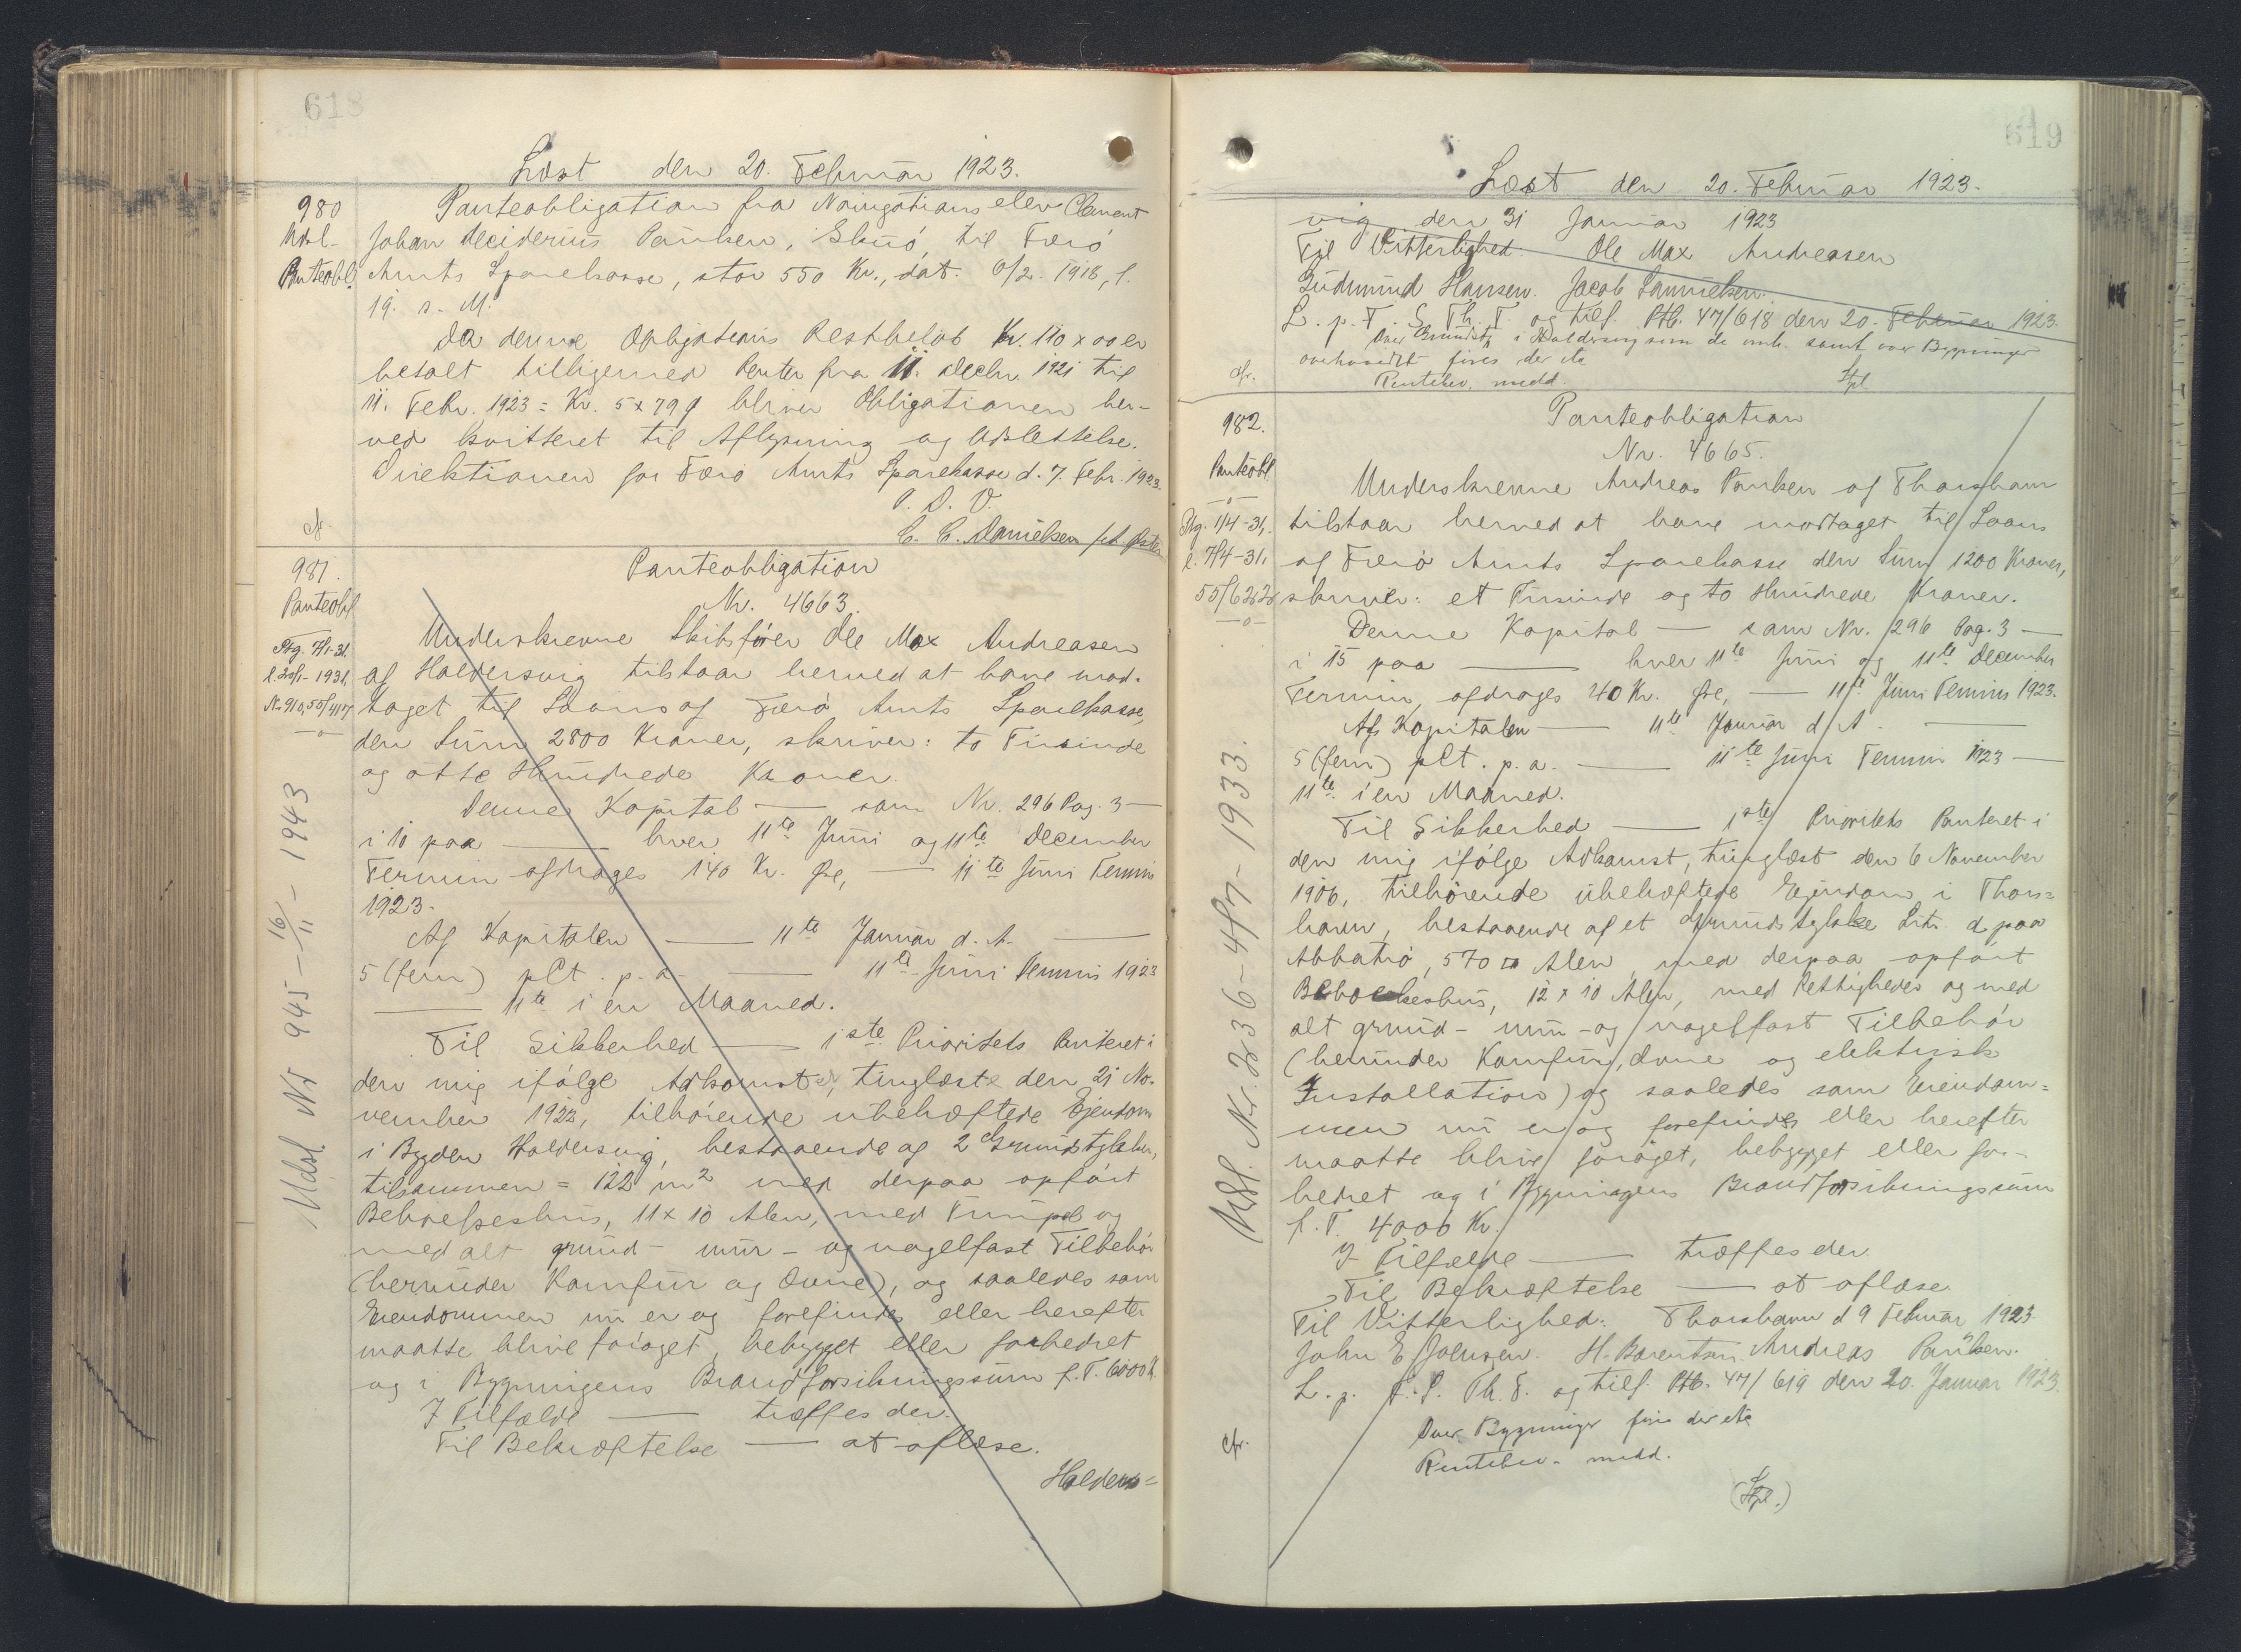 618
Læst den 20. Februar 1923.
980
Udsl.
Panteobl.
Panteobligation fra Navigationselev Clement
Johan Deciderius Paulsen, Skuó, til Færó
Amts Sparekasse, stor 550 Kr., dat. 6/2 1918, l.
19. s. M.
Da denne Obligations Restbeløb Kr. 110 x 00 er
betalt tilligemed Renter fra 11. Decbr. 1921 til
11. Febr. 1923 = Kr. 5 x 79 9 bliver Obligationen her-
ved kvitteret til Aflysning og Udslettelse.
Direktionen for Færó Amts Sparekasse d. 7. Febr. 1923.
P. D. V.
C. C. Danielsen
cfr
981.
Panteobl
Nr. 910, 55/417
Udsl. Nr 945 - 16/11 - 1943
Panteobligation
Nr. 4663.
Underskrevne Skibsfører Ole Max Andreasen
af Haldersvig tilstaar herved at have mod-
taget til Laans af Færó Amts Sparekasse,
den Sum 2800 Kroner, skriver: to Tusinde
og otte Hundrede Kroner.
Denne Kapital — som Nr. 296 Pag. 3 —
i 10 paa — hver 11te Juni og 11te December
Termin afdrages 140 Kr. Øre, — 11te Juni Termin
1923.
Af Kapitalen — 11te Januar d. A. —
5 (fem) pCt. p. a. — 11te Juni Termin 1923
— 11te i en Maaned.
Til Sikkerhed — 1ste Prioritets Panteret i
den mig ifølge Adkomster, tinglæste den 21 No-
vember 1922, tilhørende ubehæftede Ejendom
i Bygden Haldersvig, bestaaende af 2 Grundstykker,
tilsammen = 122 m2 med derpaa opført
Beboelseshus, 11 x 10 Alen, med og
med alt grund- mur- og nagelfast Tilbehór
(herunder Komfur og Ovne), og saaledes som
Eiendommen nu er og forefindes eller herefter
maatte blive forøget, bebygget eller forbedret
og i Bygningens Brandforsikringssum f. T. 6000 K.
I Tilfælde — træffes der.
Til Bekræftelse — at aflæse.
Halders=
619
Læst den 20. Februar 1923.
vig den 31 Januar 1923
Til Vitterlighed. Ole Max Andreasen
Gudmund Hansen. Jacob Samuelsen.
L. p. T. S. Th. T. og tilf. Ptb. 47/618 den 20. Februar 1923.
Over Grundst. i Haldersvig som de omh. samt over Bygninger
overhovedet fives der ete
Rentebev. medd.
Stpl
cfr.
982.
Panteobl
Ptg. 1/4-31,
l. 7/4-31,
Udsl. Nr. 236 - 4/7 - 1933.
Panteobligation
Nr. 4665.
Underskrevne Andreas Paulsen af Thorshavn
tilstaar herved at have modtaget til Laans
af Færó Amts Sparekasse den Sum 1200 Kroner,
skriver: et Tusinde og to Hundrede Kroner.
Denne Kapital — som Nr. 296 Pag. 3 —
i 15 paa — hver 11te Juni og 11te December
Termin, afdrages 40 Kr. Øre, — 11te Juni Termin 1923.
Af Kapitalen — 11te Januar d. A. —
5 (fem) pCt. p. a. — 11te Juni Termin 1923 —
11te i en Maaned.
Til Sikkerhed — 1ste Prioritets Panteret i
den mig ifølge Adkomst, tinglæst den 6 November
1906, tilhørende ubehæftede Ejendom i Thors=
havn, bestaaende af et Grundstykke Litr. d paa
570 □ Alen, med derpaa opført
Beboelseshus, 12 x 10 Alen, med Rettigheder og med
alt grund- mur- og nagelfast Tilbehór
(herunder Komfur, Ovne og elektrisk
Installation) og saaledes som Eiendom=
men nu er og forefindes eller herefter
maatte blive forøget, bebygget eller for-
bedret og i Bygningens Brandforsikringssum
f. T. 4000 Kr.
I Tilfælde — træffes der.
Til Bekræftelse — at aflæse
Til Vitterlighed: Thorshavn d 9 Februar 1923.
John E Joensen. H. Barentsen. Andreas Paulsen.
L. p. T. S. Th. T. og tilf. Ptb. 47/619 den 20. Januar 1923.
Over Bygninger fives der ete
Rentebev. medd.
(Stpl.)
cfr.